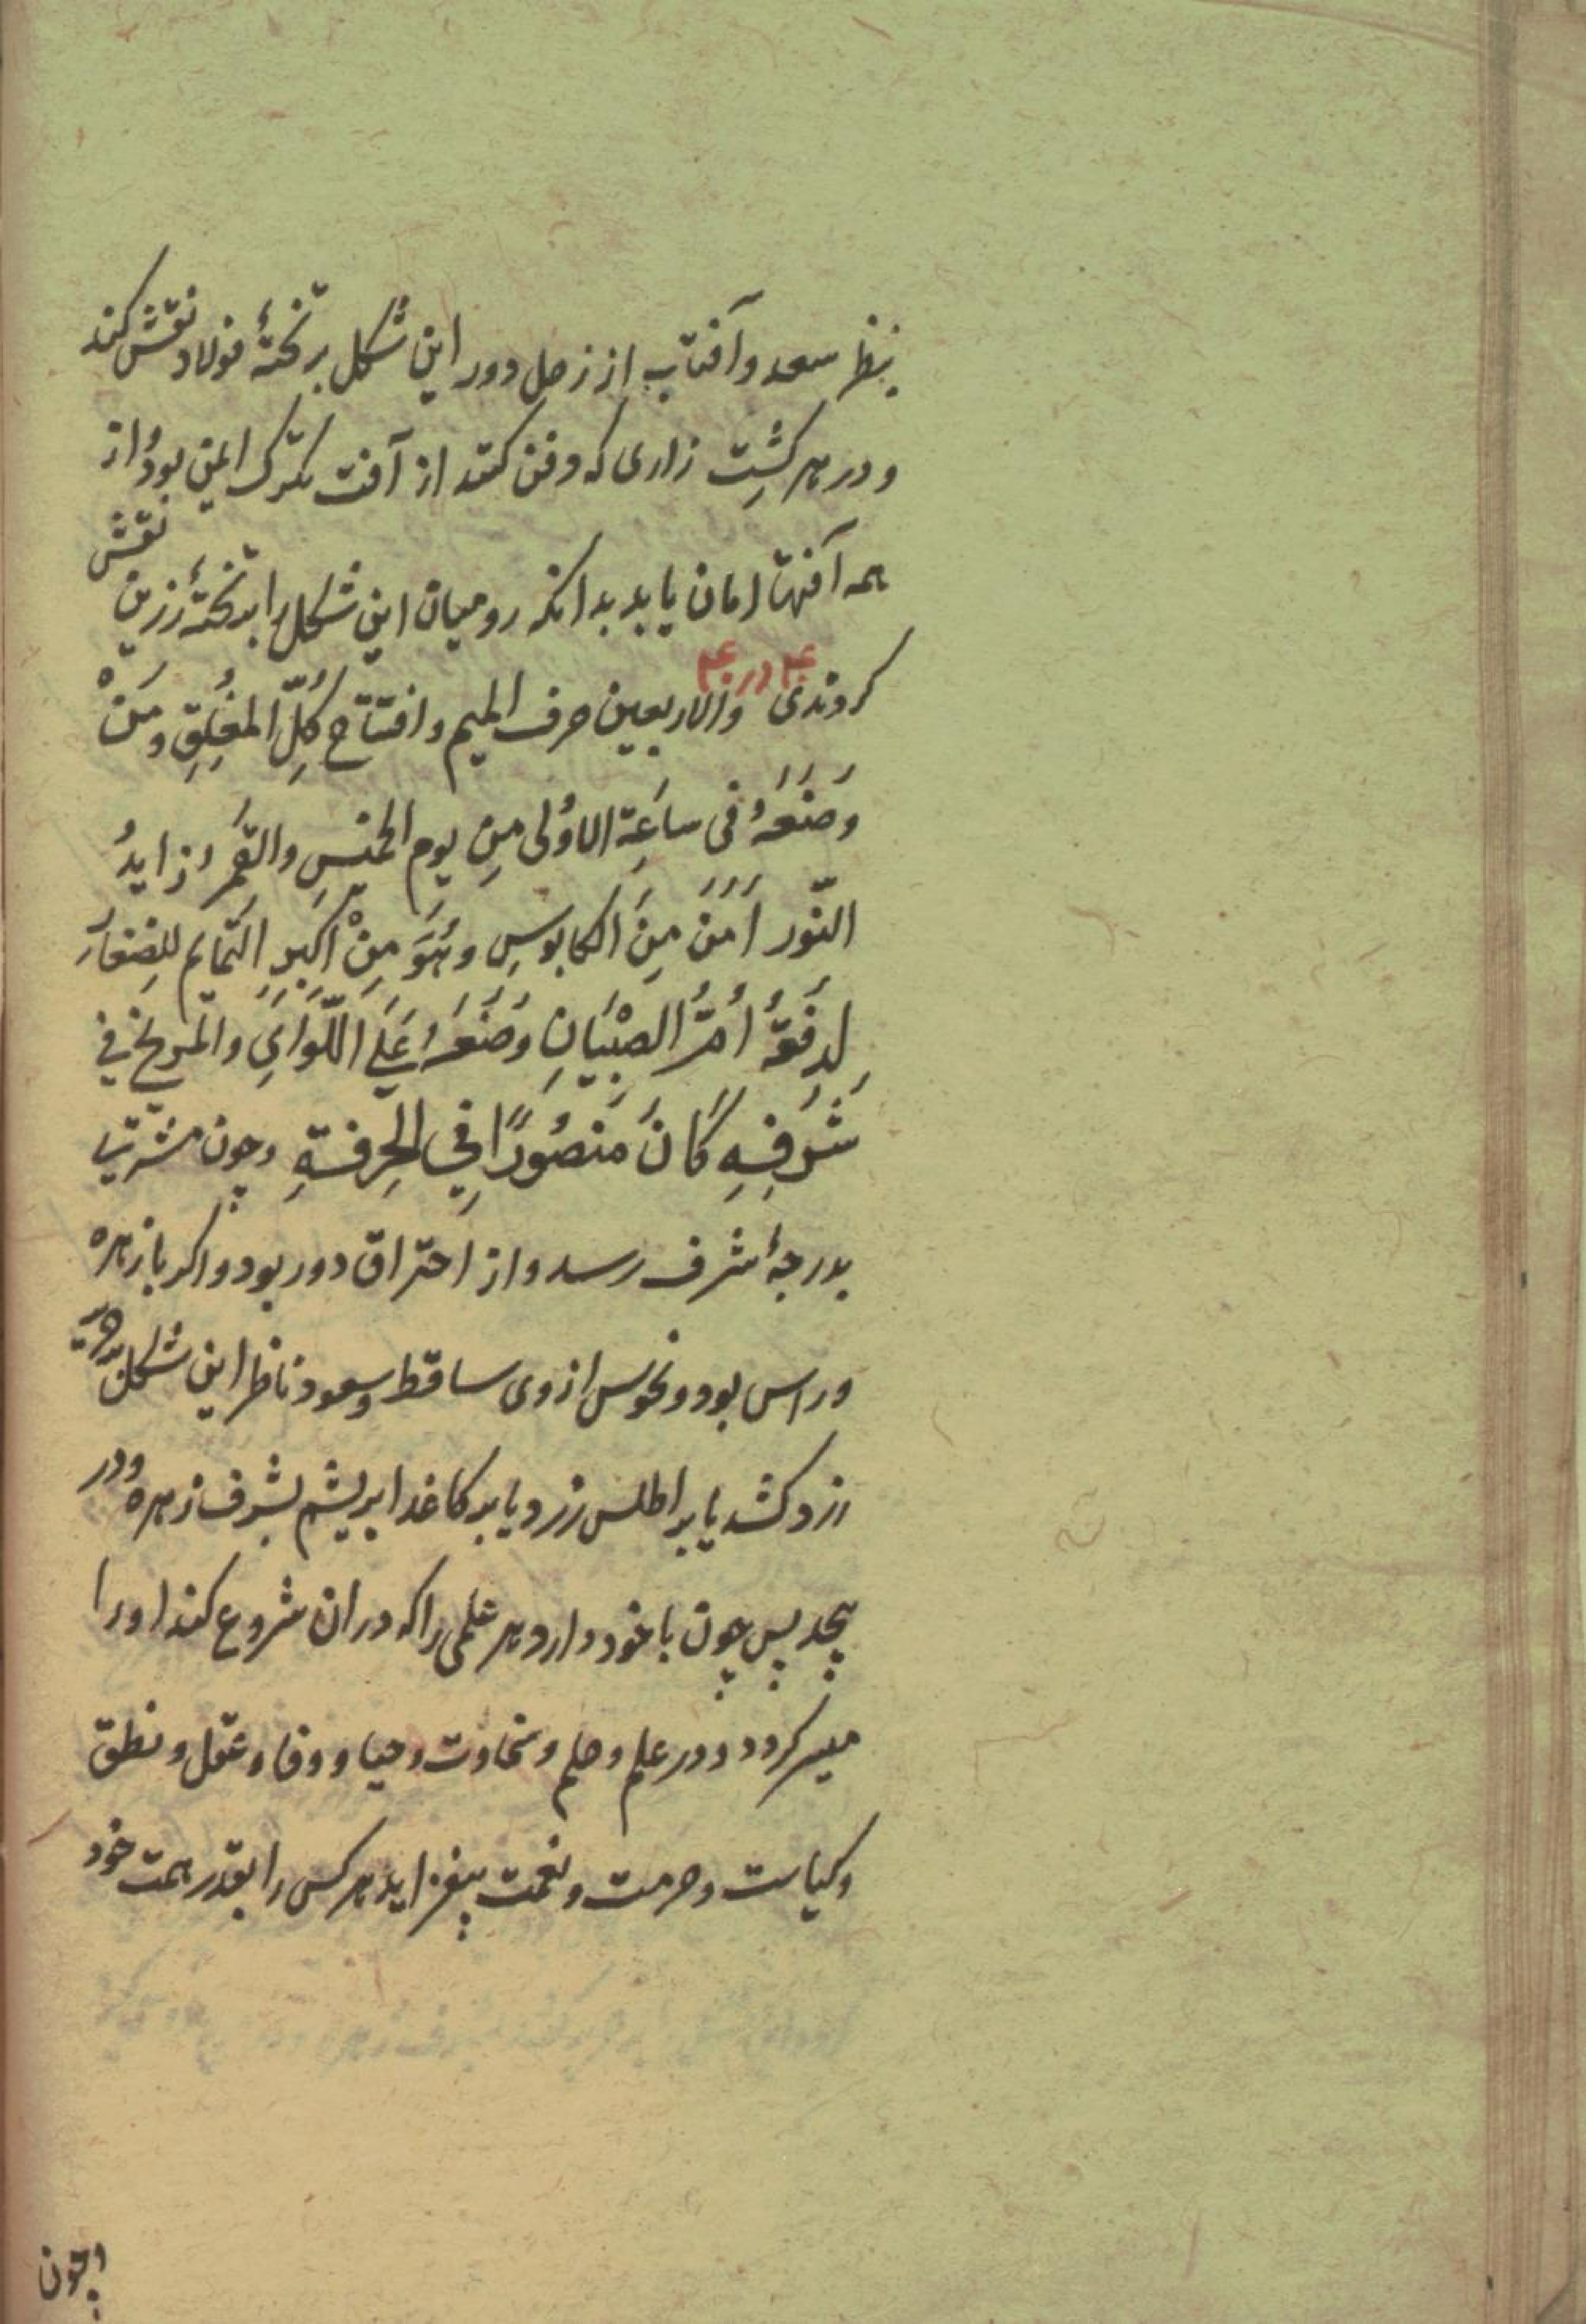 بنظر سعد و آفتاب از زحل دور این شکل بر تختهٔ فولاد نقش کند
و در هر کشت زاری که دفن کنند از آفت تکرک ایمن بود و از
همه آفتها امان یابد بدانکه رومیان این شکل را بر تختهٔ زرین نقش
کردندی ۴۰ در ۴۰ والاربعین حرف المیم و افتتاح کُلِّ المغُلِقِ ومَنْ
وضَعَهُ فی ساعَةِ الاوُلی مِن یوم الخمیسِ والقَمَرُ زایدُ
النّور اَمَنَ مِنَ الکابوسِ وهُوَ مِنْ اَکبَرِ التمایم للصِغارَ
لِدفَعَهُ اُمُّ الصِبْیَانِ وَضَعَهُ عَلَی اللّوَایِ والمریخ فی
شَرَفِهِ کَانَ مَنصُورًا فِی الحِرفةِ وچون مشتری
بدرجهٔ شرف رسد و از احتراق دور بود و اکر با زهره
و راس بود و نحوس از وی ساقط و سعود ناظر این شکل بر حریر
زرد کشد یا بر اطلس زرد یا بر کاغذ ابریشم بشرف زهره و در
پیچد پس چون با خود دارد هر علمی را که در ان شروع کند او را
میسر کردد و در علم و حلم و سخاوت و حیا و وفا و عقل و نطق
و کیاست و حرمت و نعمت بیفزاید هر کس را بقدر همت خود
وچون